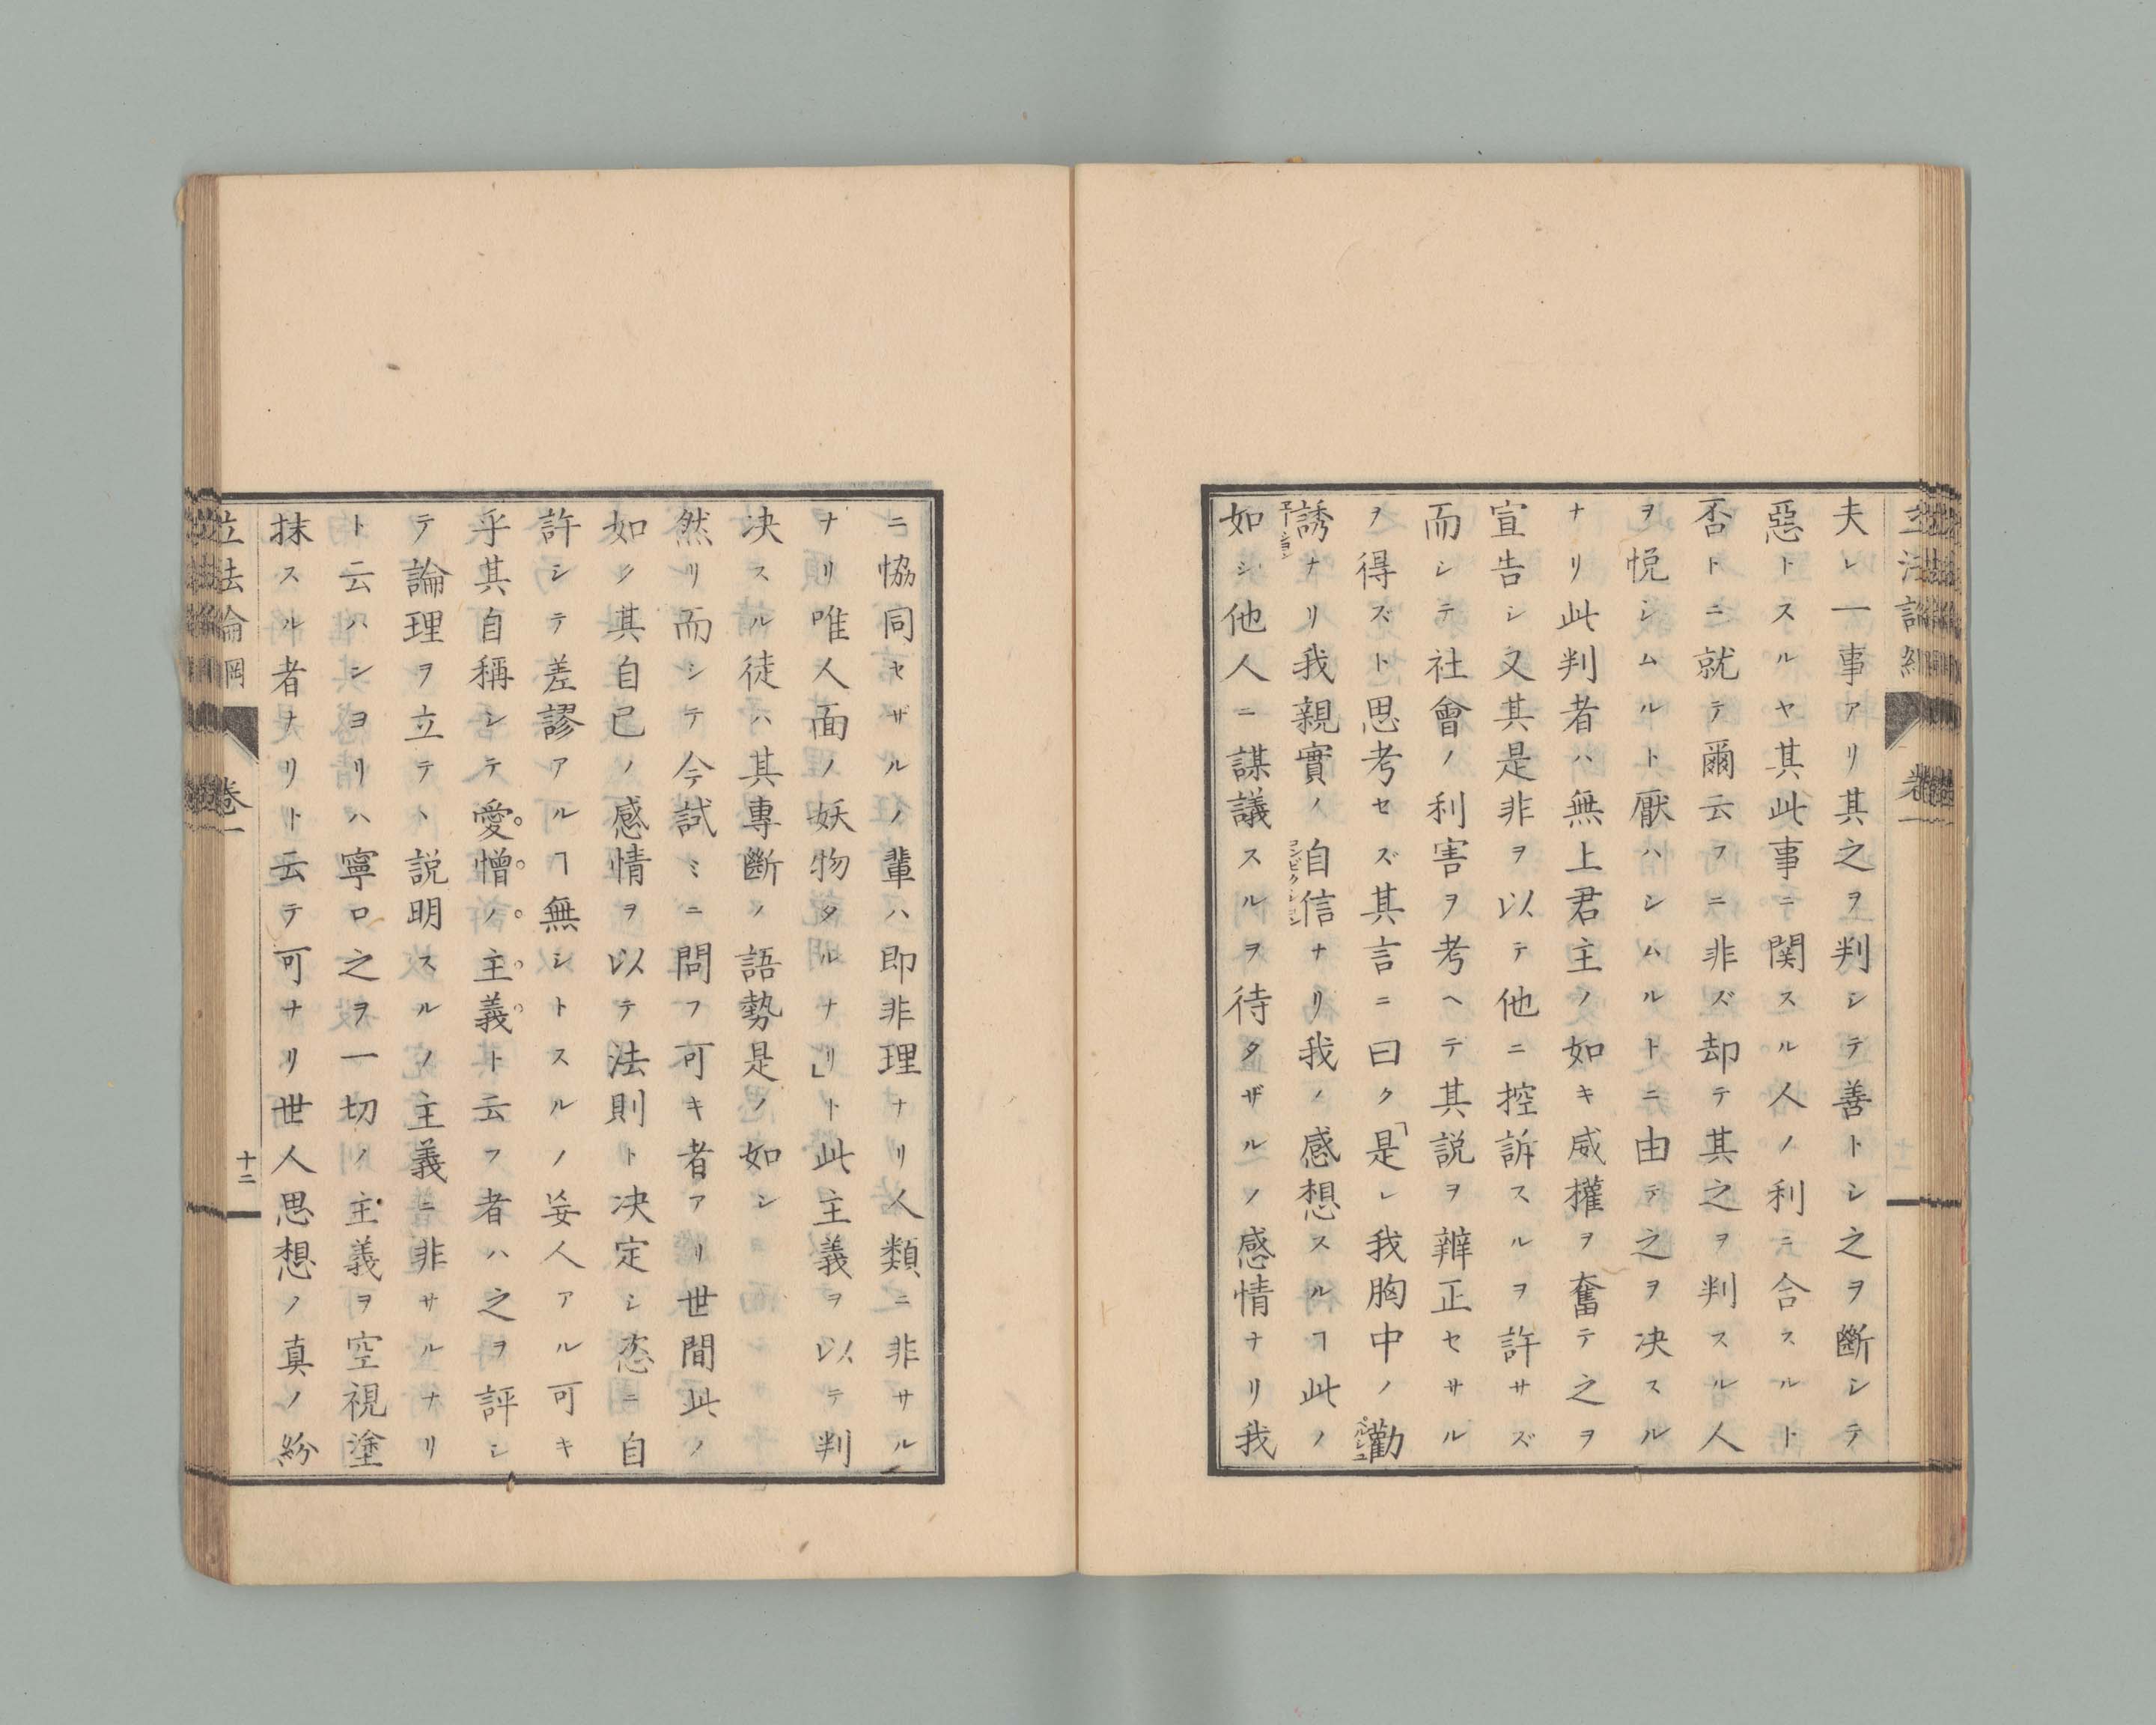 夫レ一事アリ其之ヲ判シテ善トシ之ヲ斷シテ
惡トスルヤ其此事ニ関スル人ノ利ニ合スルト
否トニ就テ爾云フニ非ズ却テ其之ヲ判スル人
ヲ悦シムルト厭ハシムルトニ由テ之ヲ决スル
ナリ此判者ハ無上君主ノ如キ威權ヲ奮テ之ヲ
宣告シ又其是非ヲ以テ他ニ控訴スルヲ許サズ
而シテ社會ノ利害ヲ考ヘテ其説ヲ辨正セサル
ヲ得ズト思考セズ其言ニ曰ク「是レ我胸中ノ勸
誘ナリ我親實ノ自信ナリ我ノ感想スルヿ此ノ
コンビクション
如シ他人ニ謀議スルヲ待タザルノ感情ナリ我
ニ恊同セザルノ輩ハ即非理ナリ人類ニ非サル
ナリ唯人面ノ妖物タルナリ」ト此主義ヲ以テ判
决スル徒ハ其專斷ノ語勢是ノ如シ
然リ而シテ今試ミニ問フ可キ者アリ世間此ノ
如ク其自已ノ感情ヲ以テ法則ト决定シ恣ニ自
許シテ差謬アルヿ無シトスルノ妄人アル可キ
乎其自稱シテ愛憎ノ主義ト云フ者ハ之ヲ評シ
テ論理ヲ立テヽ説明スルノ主義ニ非サルナリ
ト云ハンヨリハ寧ロ之ヲ一切ノ主義ヲ空視塗
抹スル者ナリト云テ可ナリ世人思想ノ真ノ紛
立法論綱
卷一
十二